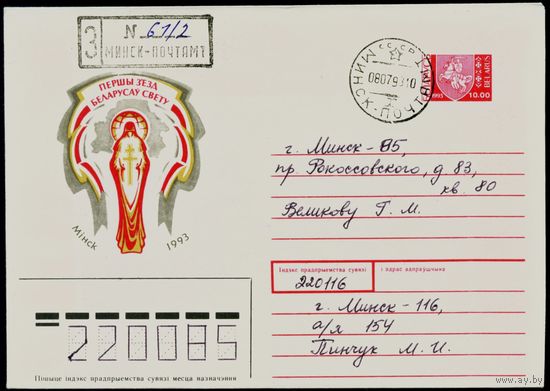 З
N 61/2
МИНСК-ПОЧТАМТ
ПЕРШЫ З'ЕЗД
БЕЛАРУСАЎ СВЕТУ
Мінск
1993
СССР
080793 10
МИНСК-ПОЧТАМТ
BELARUS
1993 10.00
г. Минск-85,
пр. Рокоссовского, д. 83,
кв. 80
Великову Г. М.
Індэкс прадпрыемства сувязі і адрас адпраўшчыка
220116
г. Минск-116,
а/я 154
Пинчук М. И.
220085
Пішыце індэкс прадпрыемства сувязі месца назначэння
www.ay.by